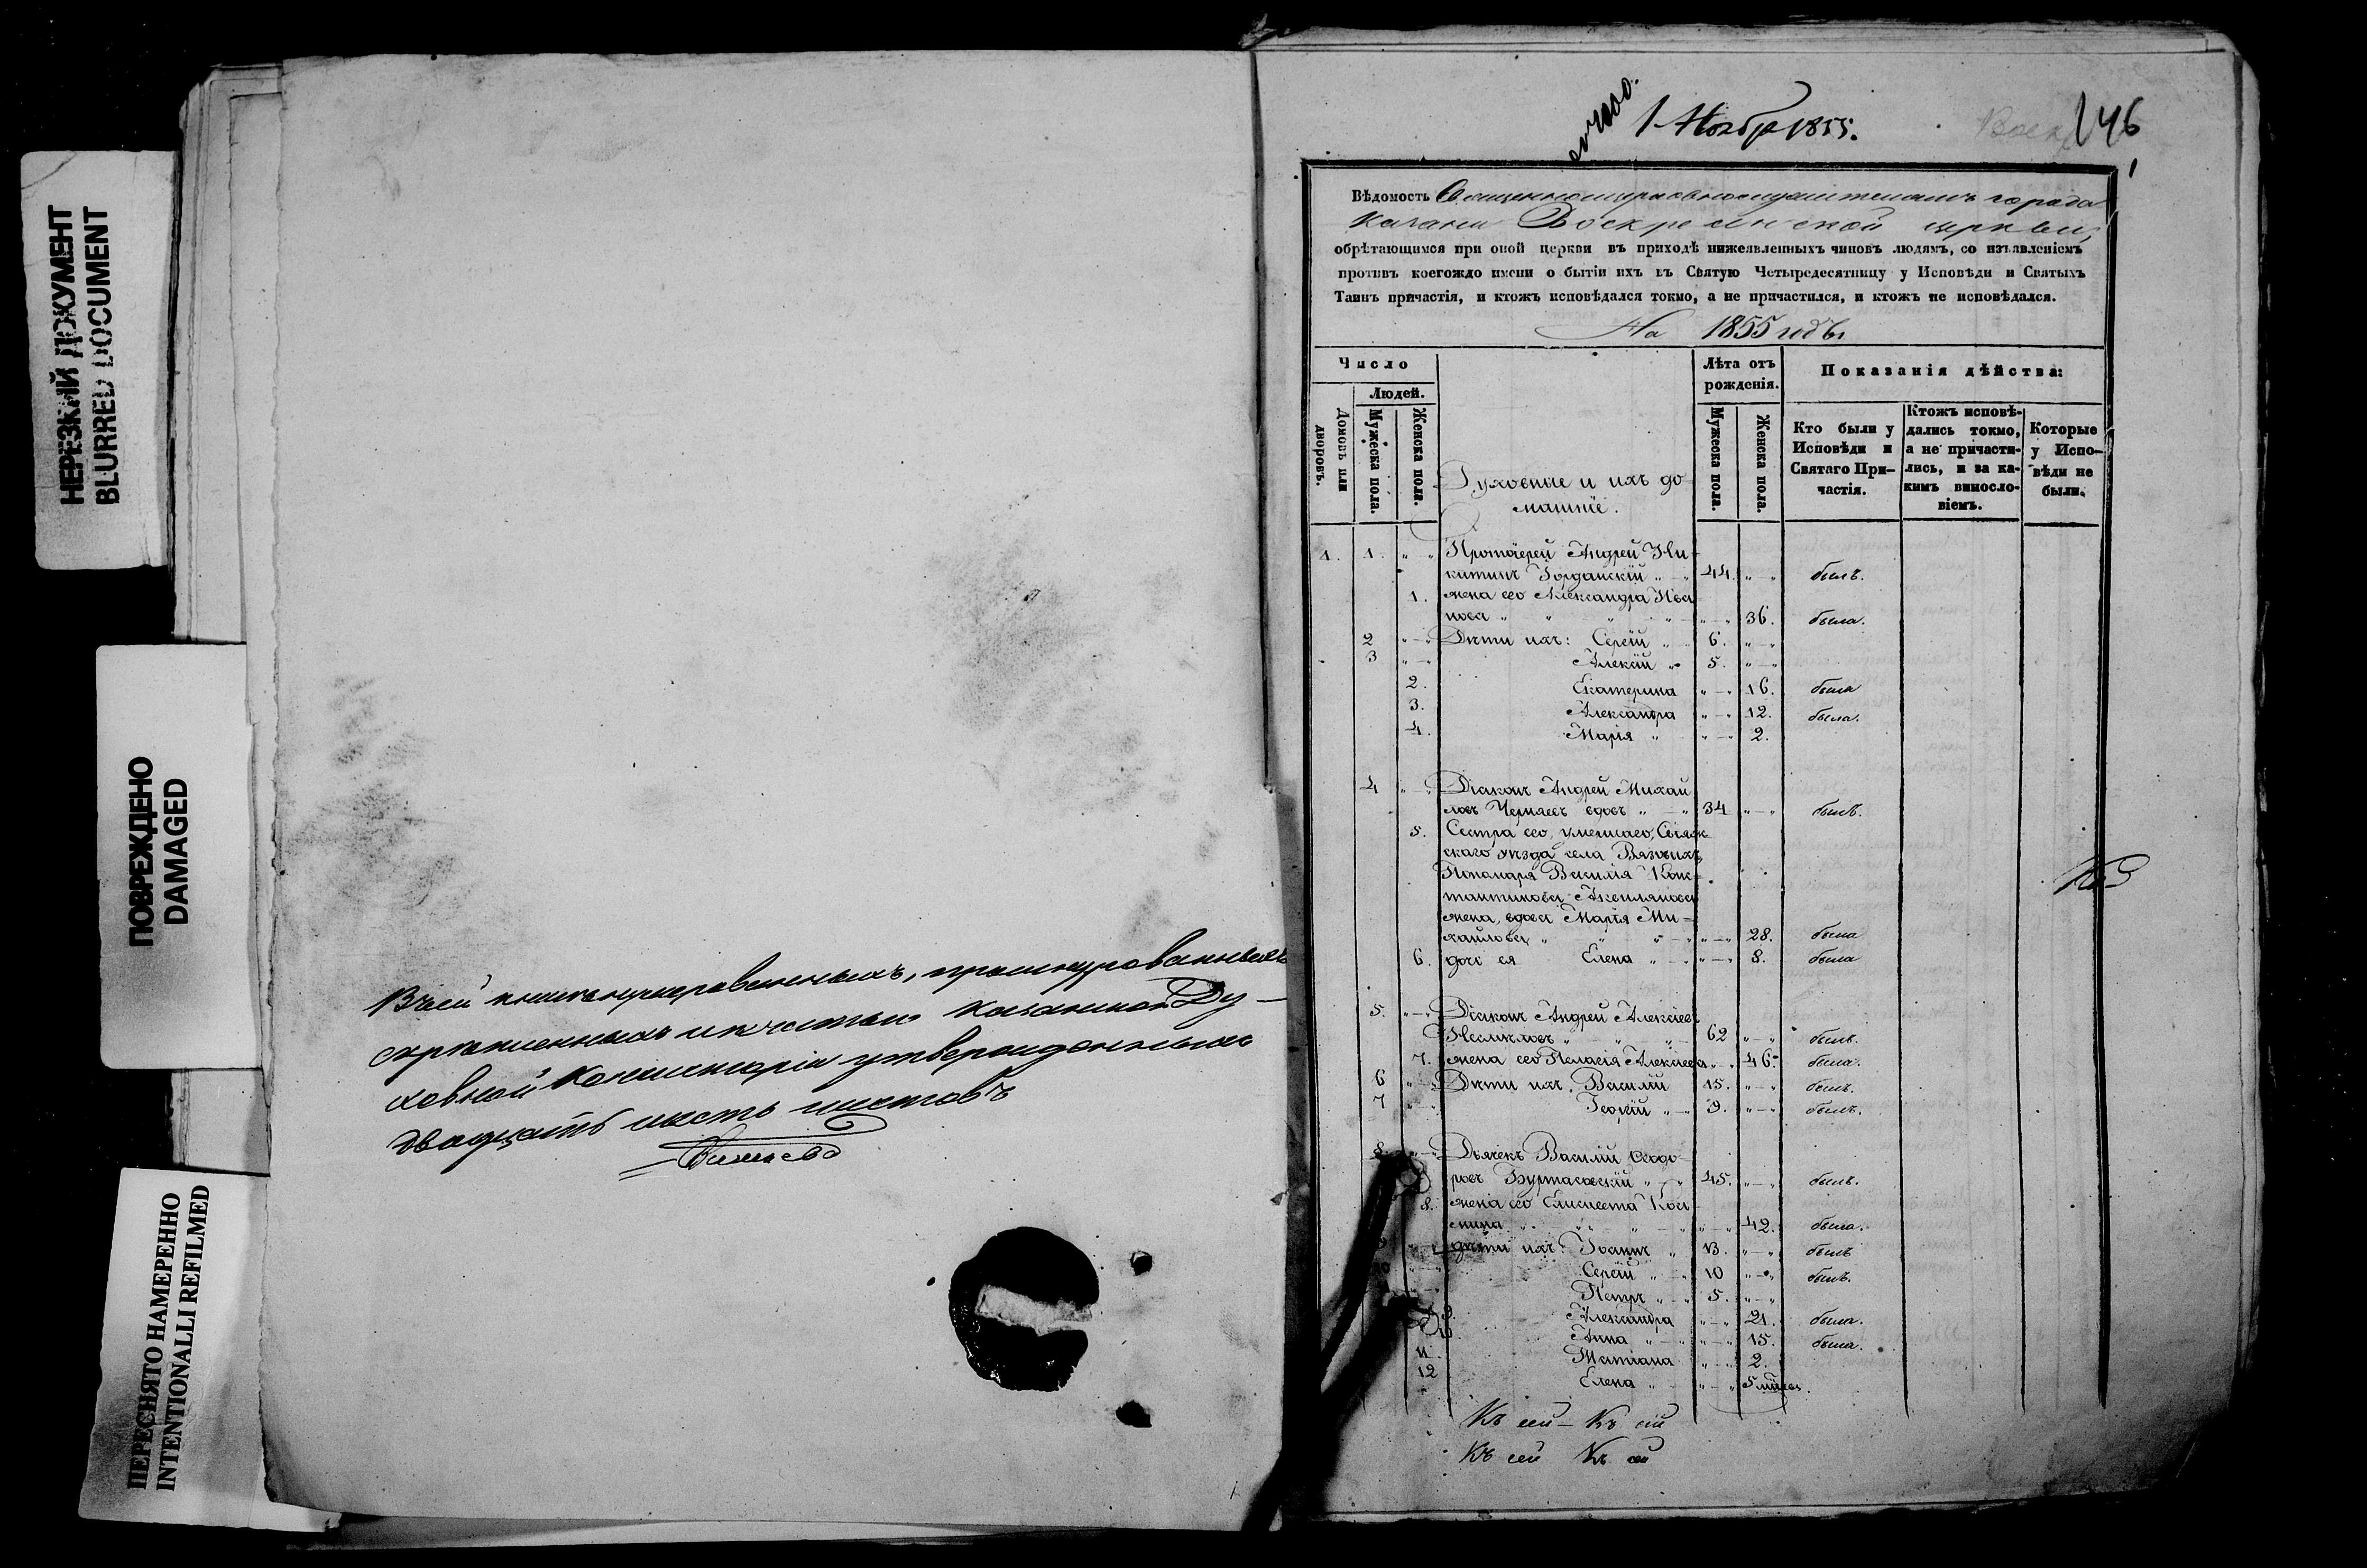 НЕРЕЗКИЙ ДОКУМЕНТ
BLURRED DOCUMENT
ПОВРЕЖДЕНО
DAMAGED
ПЕРЕСНЯТО НАМЕРЕННО
INTENTIONALLI REFILMED
Въ сей книге нумерованныхъ, прошнурованныхъ
скрепленныхъ и печатью Казанской Ду-
ховной Консисторіи утвержденныхъ
двадцать шесть листовъ
1 Ноября 1855.
146
1
Вѣдомость Священноцерковнослужителямъ города
Казани Воскресенской церкви,
обрѣтающимся при оной церкви въ приходѣ нижеявленныхъ чиновъ людямъ, со изъявленіемъ
противъ коегождо имени о бытіи ихъ въ Святую Четыредесятницу у Исповѣди и Святыхъ
Таинъ причастія, и ктожъ исповѣдался токмо, а не причастился, и ктожъ не исповѣдался.
На 1855 годъ
Число
Людей.
Домовъ или дворовъ.
Мужеска пола.
Женска пола.
Духовные и ихъ до
машніе.
Лѣта отъ рожденія.
Мужеска пола.
Женска пола.
Показанія дѣйства:
Кто были у Исповѣди и Святаго При-частія.
Ктожъ исповѣ-дались токмо, а не причасти-лись, и за ка-кимъ винносло-віемъ.
Которые у Испо-вѣди не были.
1. 1. Протоіерей Андрей Ни
китинъ Іорданскій 44. былъ.
1. жена его Александра Ива
нова 36. была.
2 Дѣти ихъ: Сергій 6.
3 Алексій 5.
2. Екатерина 16. была
3. Александра 12. была.
4. Марія 2.
4 Діаконъ Андрей Михай
ловъ Черняевъ вдовъ 34 былъ.
5. Сестра его, умершаго, Свіяж-
скаго уѣзда села
Пономаря Василія Конс-
тантинова
жена, вдова Марія Ми-
хайлова 28. была
6. дочь ея Елена 8. была
5. Діаконъ Андрей Алексѣевъ
62 былъ.
7. жена его Пелагія Алексѣева 46. была.
6 Дѣти ихъ. Василій 15. былъ.
7 Георгій 9. былъ.
8 Дьячекъ Василій Ѳеодо
ровъ 45. былъ.
8. жена его Елисавета Кось
мина 42. была.
9 дѣти ихъ: Іоаннъ 13. былъ
10 Сергій 10 былъ.
Петръ 5.
9. Александра 21. была.
10. Анна 15. была.
11. Татіана 2.
12 Елена 5 мѣсяц.
Къ сей – Къ сей
Къ сей Къ сей